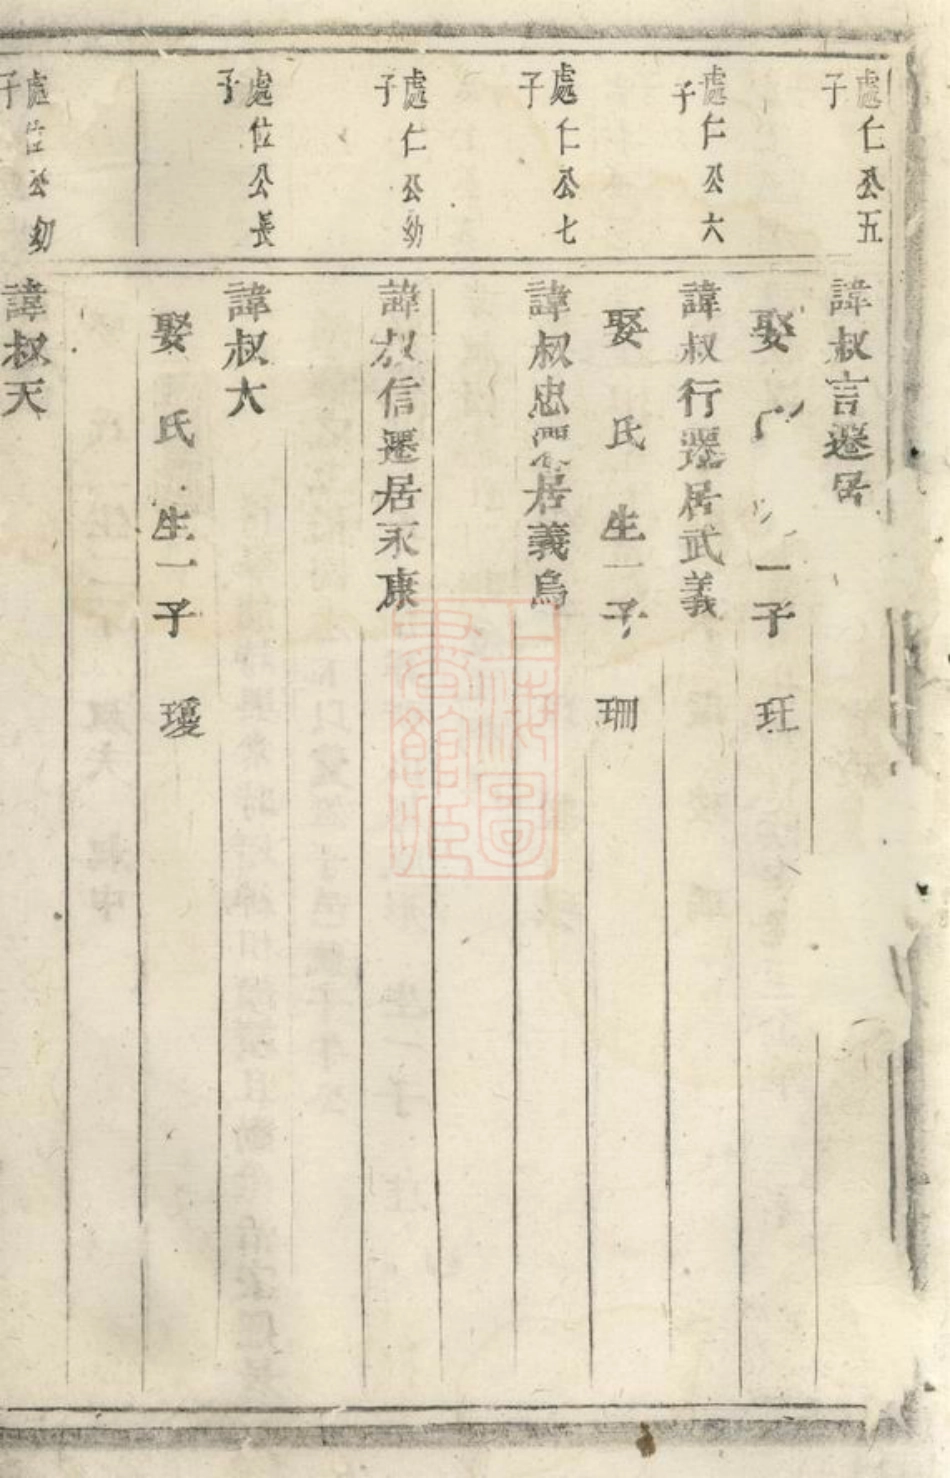 處仁公五
子
諱叔言遷居
娶 一子 玨
處仁公六
子
諱叔行遷居武義
娶 氏 生一子 珊
處仁公七
子
諱叔忠遷居義烏
處仁公幼
子
諱叔信遷居永康
處位公長
子
諱叔大
娶 氏 生一子 瓊
處位公幼
子
諱叔天
上海圖書館藏